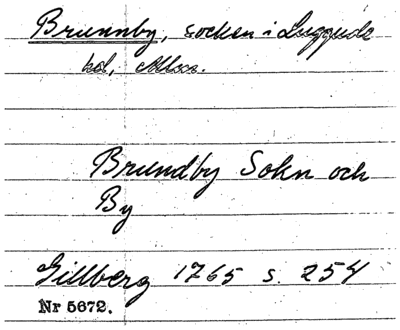 Brunnby, socken i Luggude
hd, Mlbzs.
Brundby Sokn och
By
Gillberg 1765 s. 254
Nr 5672.